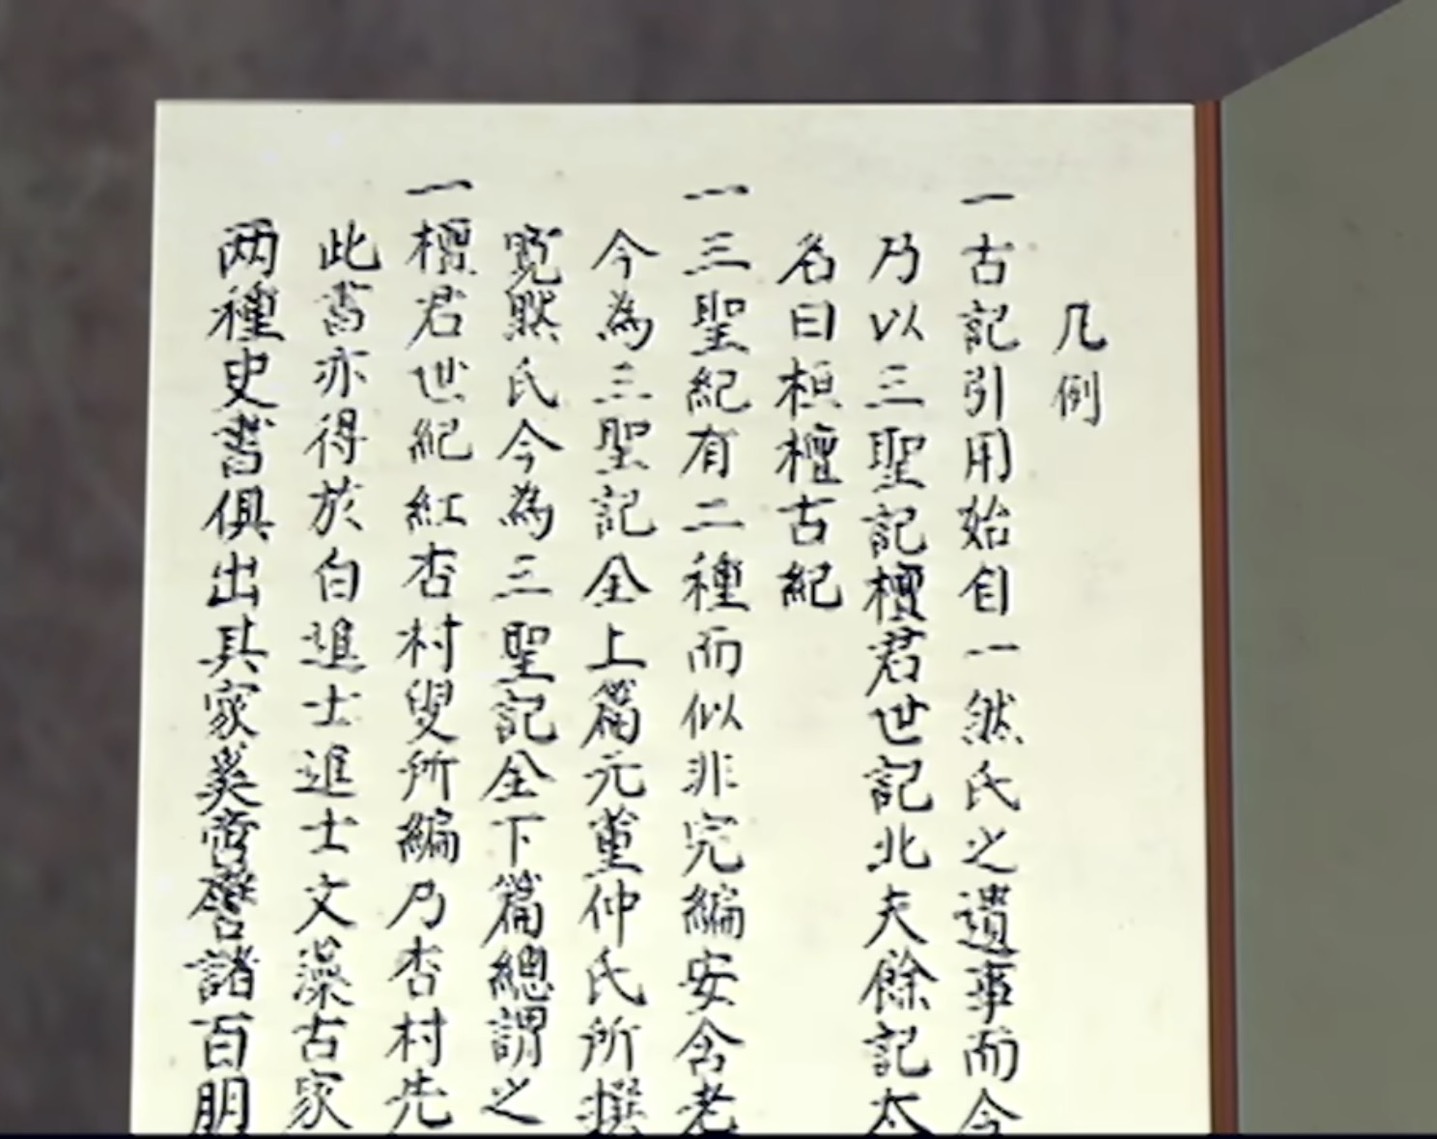 凡例
一古記引用始自一然氏之遺事而今
乃以三聖記檀君世記北夫餘記太
名曰桓檀古紀
一三聖紀有二種而似非完編安含老
今為三聖記全上篇元董仲氏所撰
氏今為三聖記全下篇總謂之
一檀君世紀紅杏村叟所編乃杏村先
此書亦得於白進士進士文藻古家
两種史書俱出其家奚啻譽諸百朋